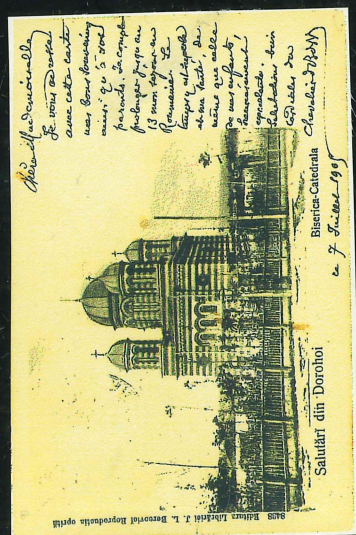 Chère Mademoiselle
Je vous adresse
avec cette carte
mes bons souvenirs
ainsi qu'à vos
parents. Je compte
prolonger jusqu'au
13 mon séjour en
Roumanie. Le
temps est
et ma santé de
même que celle
de mes enfants
heureusement
excellente.
Salutations bien
cordiales du
Chevalier
ce 7 Juillet 1905
Biserica-Catedrala
Salutări din Dorohoi
8428 Editura Librăriei J. L. Bercovici Reproducția oprită